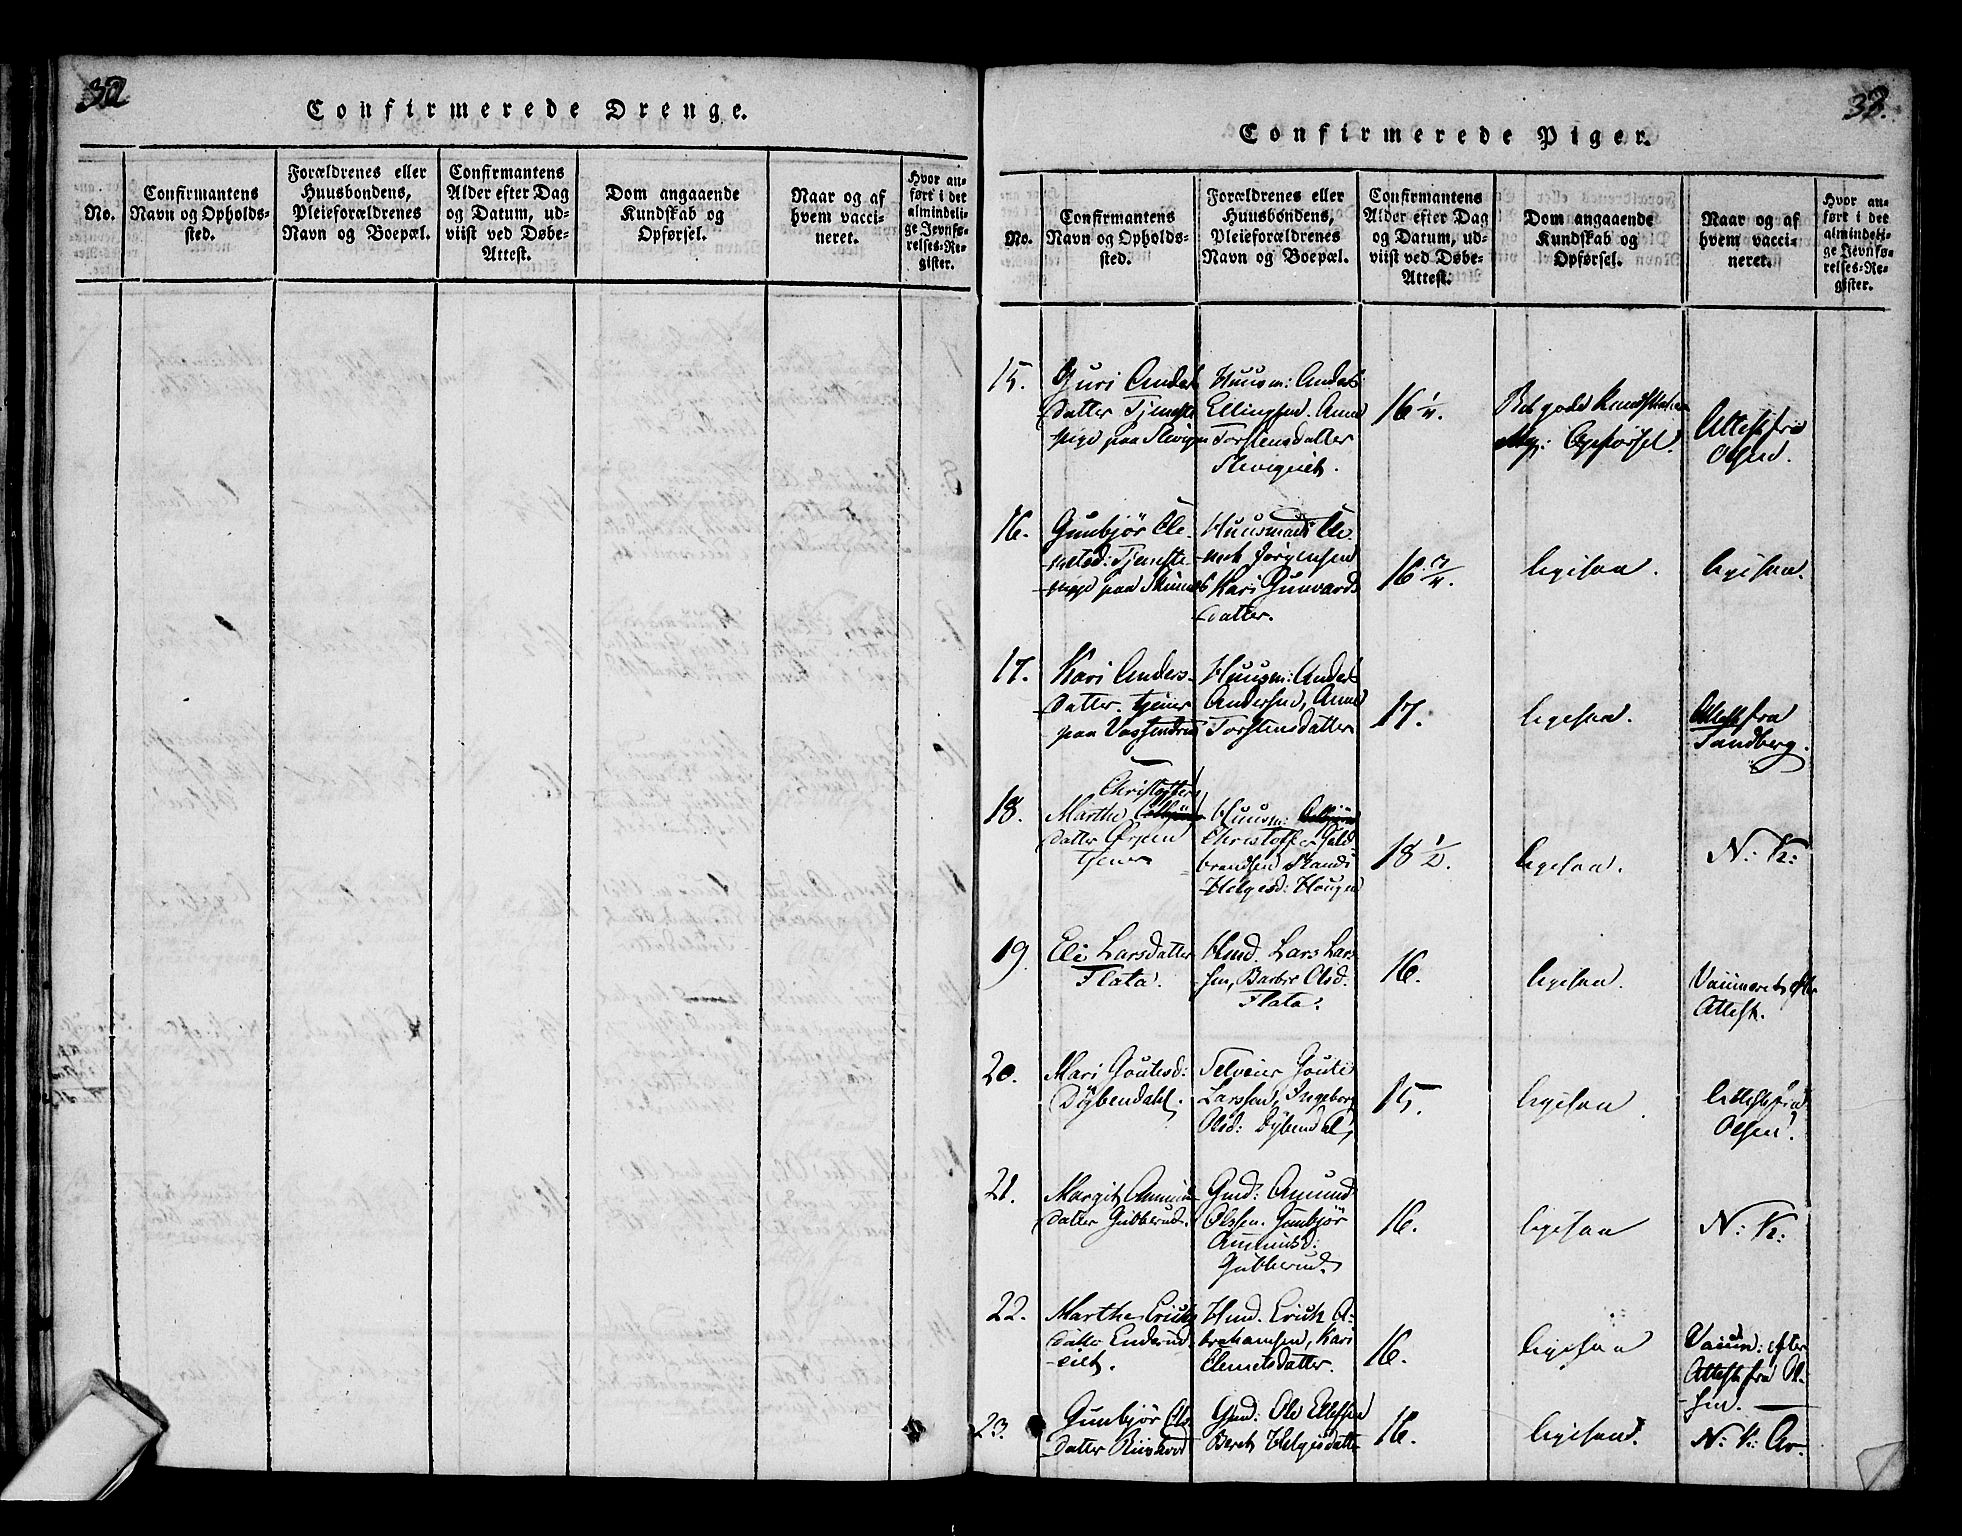 Confirmerede Drenge.
No.
Confirmantens
Navn og Opholds-
sted.
Forældrenes eller
Huusbondens,
Pleieforældrenes
Navn og Boepæl.
Confirmantens
Alder efter Dag
og Datum, ud-
viist ved Døbe-
Attest.
Dom angaaende
Kundskab og
Opførsel.
Naar og af
hvem vacci-
neret.
Hvor an-
ført i det
almindeli-
ge Jevnfø-
relses-Re-
gister.
Confirmerede Piger.
No.
Confirmantens
Navn og Opholds-
sted.
Forældrenes eller
Huusbondens,
Pleieforældrenes
Navn og Boepæl.
Confirmantens
Alder efter Dag
og Datum, ud-
viist ved Døbe-
Attest.
Dom angaaende
Kundskab og
Opførsel.
Naar og af
hvem vacci-
neret.
Hvor an-
ført i det
almindeli-
ge Jevnfø-
relses-Re-
gister.
15.
Guri Anders
datter Tjeneste
pige paa
Huusm: Anders
Ellingsen. Anne
Torstensdatter
16 1/4.
gode Kundskaber
Opførsel.
Attest fra
Olsen.
16.
Gunbjør Cle-
metsd: Tjeneste
pige paa
Huusmand Cle-
met Jørgensen
Kari Gunvards
datter.
16 3/4.
ligesaa.
ligesaa.
17.
Kari Anders-
datter. tjener
paa
Huusm: Anders
Andersen, Anne
Torstensdatter
17.
ligesaa.
Attest fra
Sandberg.
18.
Christoffers
Marthe
datter
tjener
Huusm:
Christoffer Guld-
brandsen Randi
Helgesd: Hougen
18 1/2.
ligesaa.
N: K:
19.
Eli Larsdatter
Flata.
Hmd. Lars Lars-
sen, Barbro Olsd:
Flata.
16.
ligesaa.
Vaccineret efter
Attest.
20.
Mari Goutesd:
Dybendahl.
Selveier Goute
Larssen, Ingeborg
Olsd: Dybendal,
15.
ligesaa.
Attest fra
Olsen.
21.
Margit Amunds
datter Gubberud.
Gmd: Amund
Olssen. Gunbjør
Amundsd:
Gubberud.
16.
ligesaa
N: K:
22.
Marthe Erichs
datter Enderud-
eiet.
Hmd. Erich A-
brahamsen, Kari
Clemetsdatter.
16.
ligesaa
Vaccin: efter
Attest fra Ol-
sen.
23.
Gunbjør Ols-
datter
Gmd: Ole Ellefsen
Beret Helgesdatter
16.
ligesaa.
N: K: